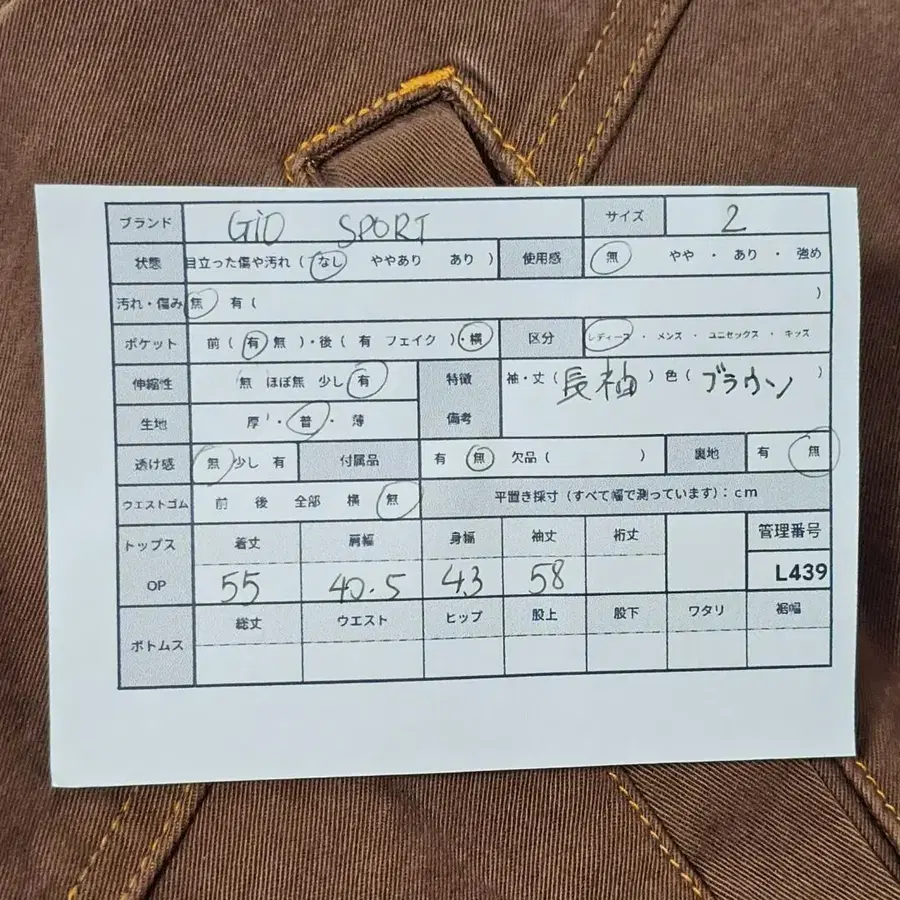 ブランド GiO SPORT サイズ 2
状態 目立った傷や汚れ ( なし ややあり あり ) 使用感 無 やや ・ あり ・ 強め
汚れ・傷み 無 有 ( )
ポケット 前 ( 有 無 )・後 ( 有 フェイク )・横 区分 レディース ・ メンズ ・ ユニセックス ・ キッズ
伸縮性 無 ほぼ無 少し 有 特徴 袖・丈 ( 長袖 ) 色 ( ブラウン )
生地 厚 ・ 普 ・ 薄 備考
透け感 無 少し 有 付属品 有 無 欠品 ( ) 裏地 有 無
ウエストゴム 前 後 全部 横 無 平置き採寸 (すべて幅で測っています) : cm
トップス 着丈 肩幅 身幅 袖丈 裄丈 管理番号
OP 55 40.5 43 58 L439
ボトムス 総丈 ウエスト ヒップ 股上 股下 ワタリ 裾幅